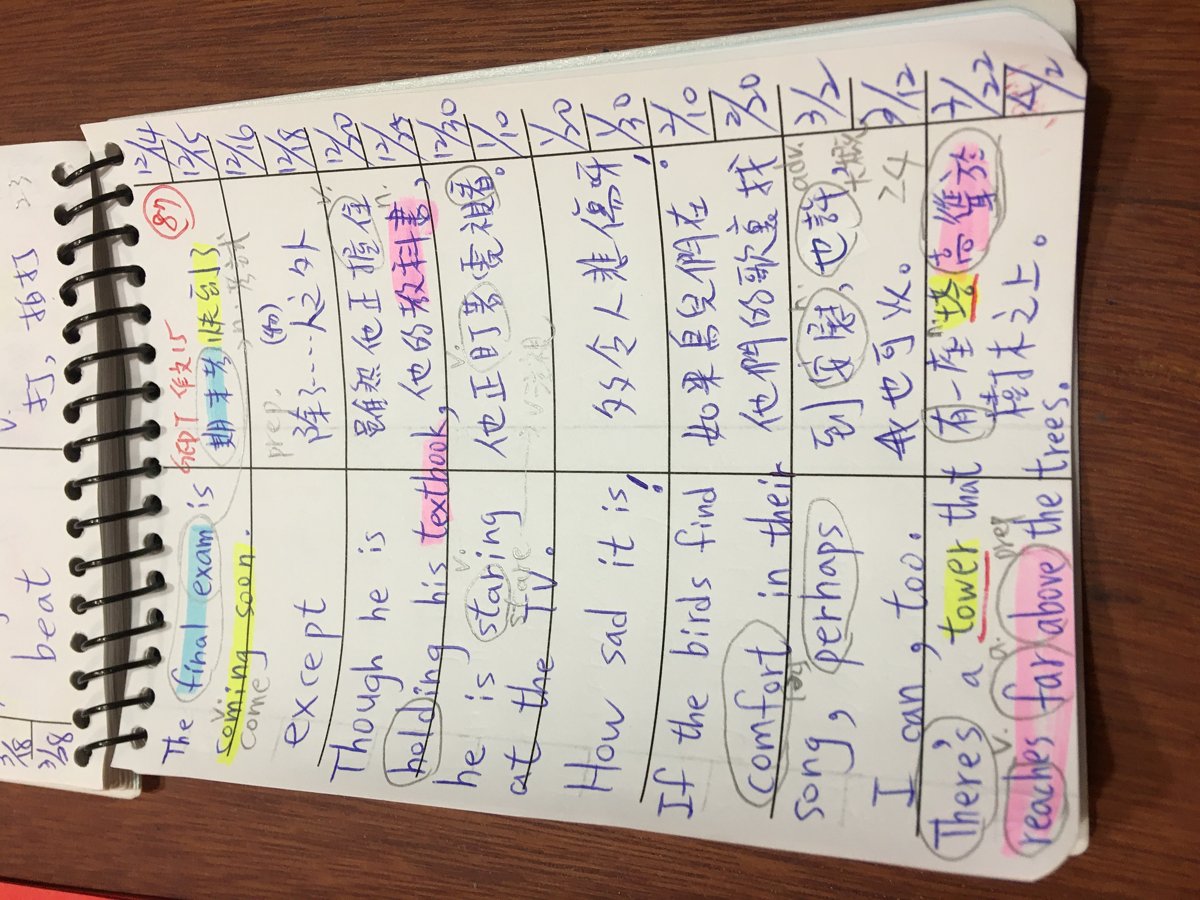 beat
打, 拍打
v.
23
3/8
3/28
87
GEPT 作文15
The final exam is
期末考快到了
12/14
12/15
coming soon.
v.
come
n. 考試
12/16
except
prep.
除了…人之外
(物)
12/18
Though he is
雖然他正握住
v.
12/20
holding his textbook,
他的教科書,
n.
12/25
he is staring
v.
stare
他正盯著電視看。
v.
12/30
at the TV.
1/10
How sad it is!
多令人悲傷呀!
1/20
1/30
If the birds find
如果鳥兒們在
2/10
comfort in their
他們的歌裏找
2/20
song, perhaps
到安慰, 也許
n.
adv.
大概
3/2
I can, too.
我也可以。
24
9/12
There's a tower that
有一座塔高聳於
n.
7/22
reaches far above the trees.
v.
prep
樹木之上。
4/2